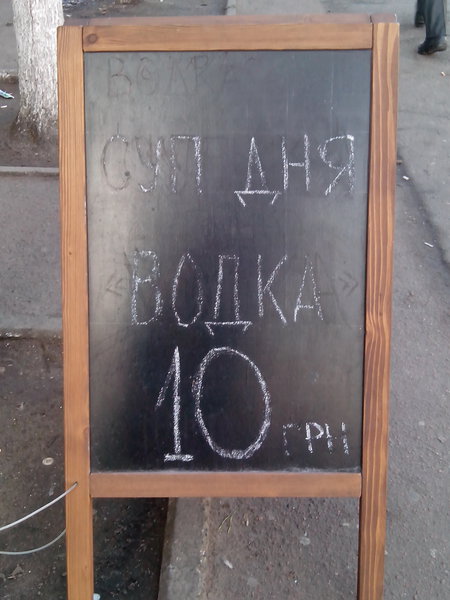 СУП ДНЯ
«ВОДКА»
10 ГРН